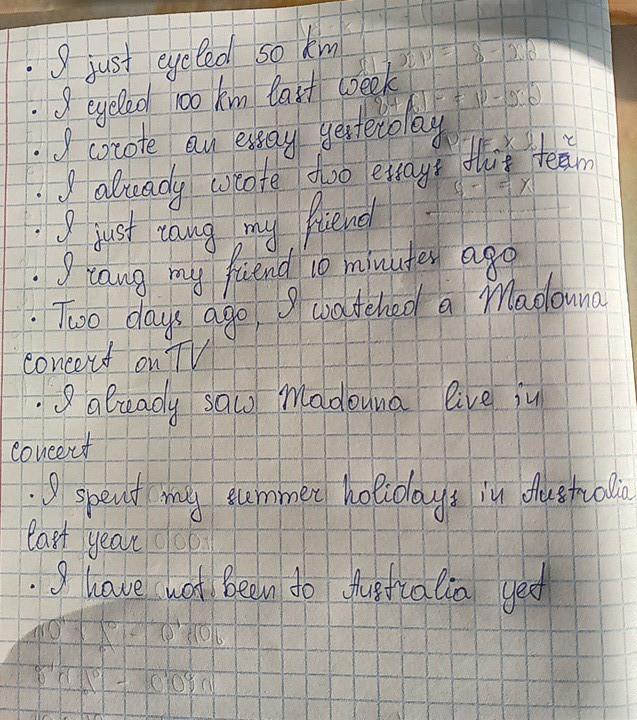 • I just cycled 50 km
• I cycled 100 km last week
• I wrote an essay yesterday
• I already wrote two essays this term
• I just rang my friend
• I rang my friend 10 minutes ago
• Two days ago, I watched a Madonna
concert on TV
• I already saw Madonna live in
concert
• I spent my summer holidays in Australia
last year
• I have not been to Australia yet